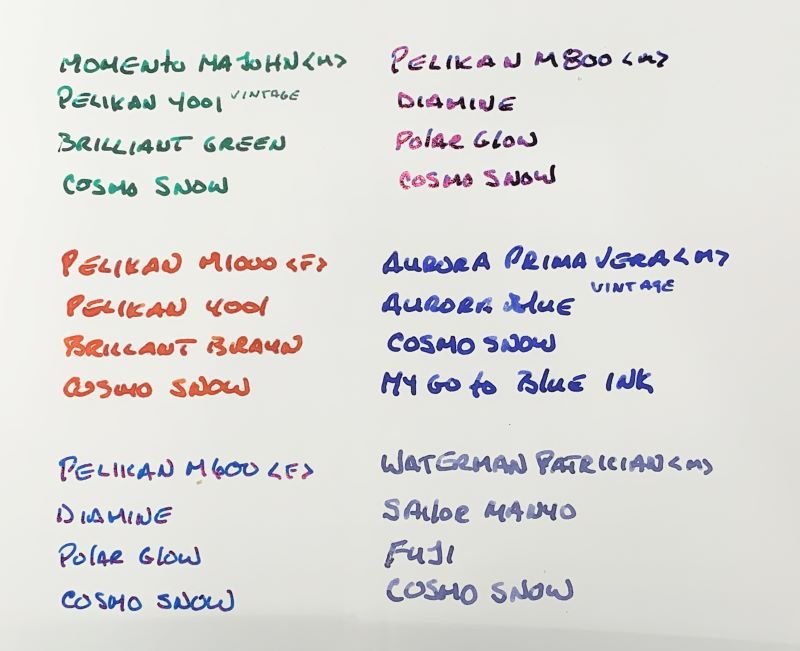 MOMENTO MAJOHN <M>
PELIKAN 4001 VINTAGE
BRILLIANT GREEN
COSMO SNOW
PELIKAN M800 <M>
DIAMINE
POLAR GLOW
COSMO SNOW
PELIKAN M1000 <F>
PELIKAN 4001
BRILLANT BRAUN
COSMO SNOW
AURORA PRIMAVERA <M>
AURORA BLUE VINTAGE
COSMO SNOW
MY GO TO BLUE INK
PELIKAN M600 <F>
DIAMINE
POLAR GLOW
COSMO SNOW
WATERMAN PATRICIAN <M>
SAILOR MANYO
FUJI
COSMO SNOW